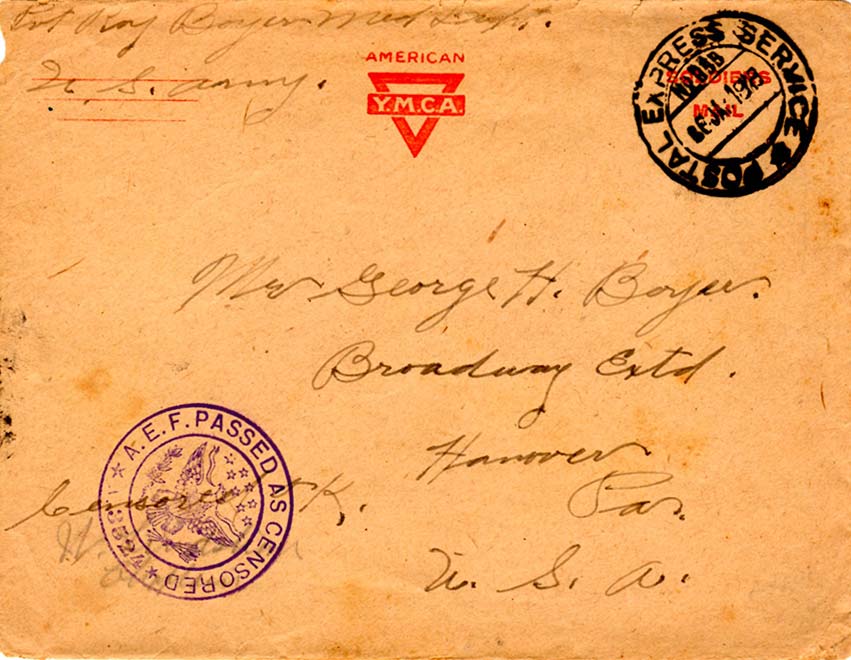 Pvt Roy Boyer Med Dept.
U. S. Army.
AMERICAN
Y.M.C.A.
SOLDIERS
MAIL
POSTAL EXPRESS SERVICE
Mr George H. Boyer.
Broadway Extd.
Hanover
Pa.
U. S. A.
A.E.F. PASSED AS CENSORED
Censored